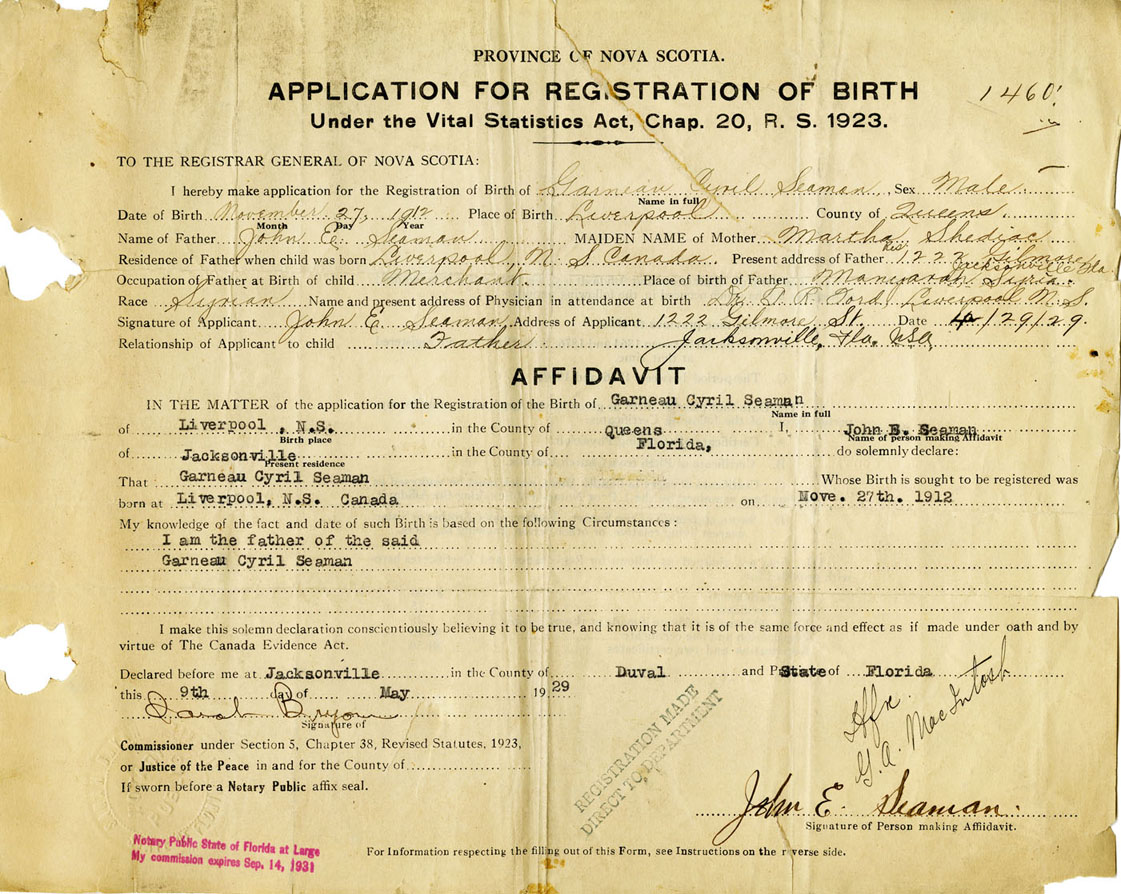 PROVINCE OF NOVA SCOTIA.
APPLICATION FOR REGISTRATION OF BIRTH
1460
Under the Vital Statistics Act, Chap. 20, R. S. 1923.
TO THE REGISTRAR GENERAL OF NOVA SCOTIA:
I hereby make application for the Registration of Birth of Garneau Cyril Seaman, Sex Male
Name in full
Date of Birth November 27, 1912 Place of Birth Liverpool County of Queens.
Month Day Year
Name of Father John E. Seaman MAIDEN NAME of Mother Martha Shediac
Residence of Father when child was born Liverpool, N. S Canada. Present address of Father 1222 Gilmore
Jacksonville Fla.
Occupation of Father at Birth of child Merchant. Place of birth of Father Siria.
Race Syrian Name and present address of Physician in attendance at birth Dr. Ford, Liverpool N. S.
Signature of Applicant John E Seaman, Address of Applicant 1222 Gilmore St. Date 4/29/29.
Relationship of Applicant to child Father Jacksonville, Fla. USA
AFFIDAVIT
IN THE MATTER of the application for the Registration of the Birth of Garneau Cyril Seaman
Name in full
of Liverpool , N.S. in the County of Queens I, John E. Seaman
Birth place Name of person making Affidavit
of Jacksonville in the County of Florida, do solemnly declare:
Present residence
That Garneau Cyril Seaman Whose Birth is sought to be registered was
born at Liverpool, N.S. Canada on Nove. 27th. 1912
My knowledge of the fact and date of such Birth is based on the following Circumstances :
I am the father of the said
Garneau Cyril Seaman
I make this solemn declaration conscientiously believing it to be true, and knowing that it is of the same force and effect as if made under oath and by
virtue of The Canada Evidence Act.
Declared before me at Jacksonville in the County of Duval and State of Florida
this 9th day of May 1929
Sarah Bryan
Signature of
Commissioner under Section 5, Chapter 38, Revised Statutes, 1923,
or Justice of the Peace in and for the County of
If sworn before a Notary Public affix seal.
REGISTRATION MADE
DIRECT TO DEPARTMENT
G. A. MacIntosh
John E. Seaman.
Signature of Person making Affidavit.
Notary Public State of Florida at Large
My commission expires Sep. 14, 1931
For Information respecting the filling out of this Form, see Instructions on the reverse side.